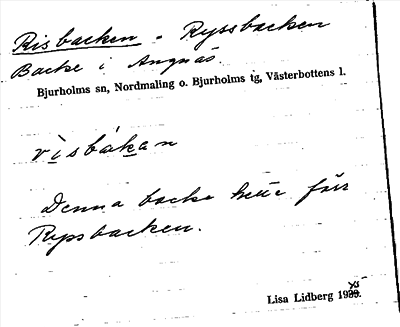 Risbacken = Ryssbacken
Backe i Angnäs
Bjurholms sn, Nordmaling o. Bjurholms tg, Västerbottens l.
rìsbákan
Denna backe hette förr
Ryssbacken.
Lisa Lidberg 19